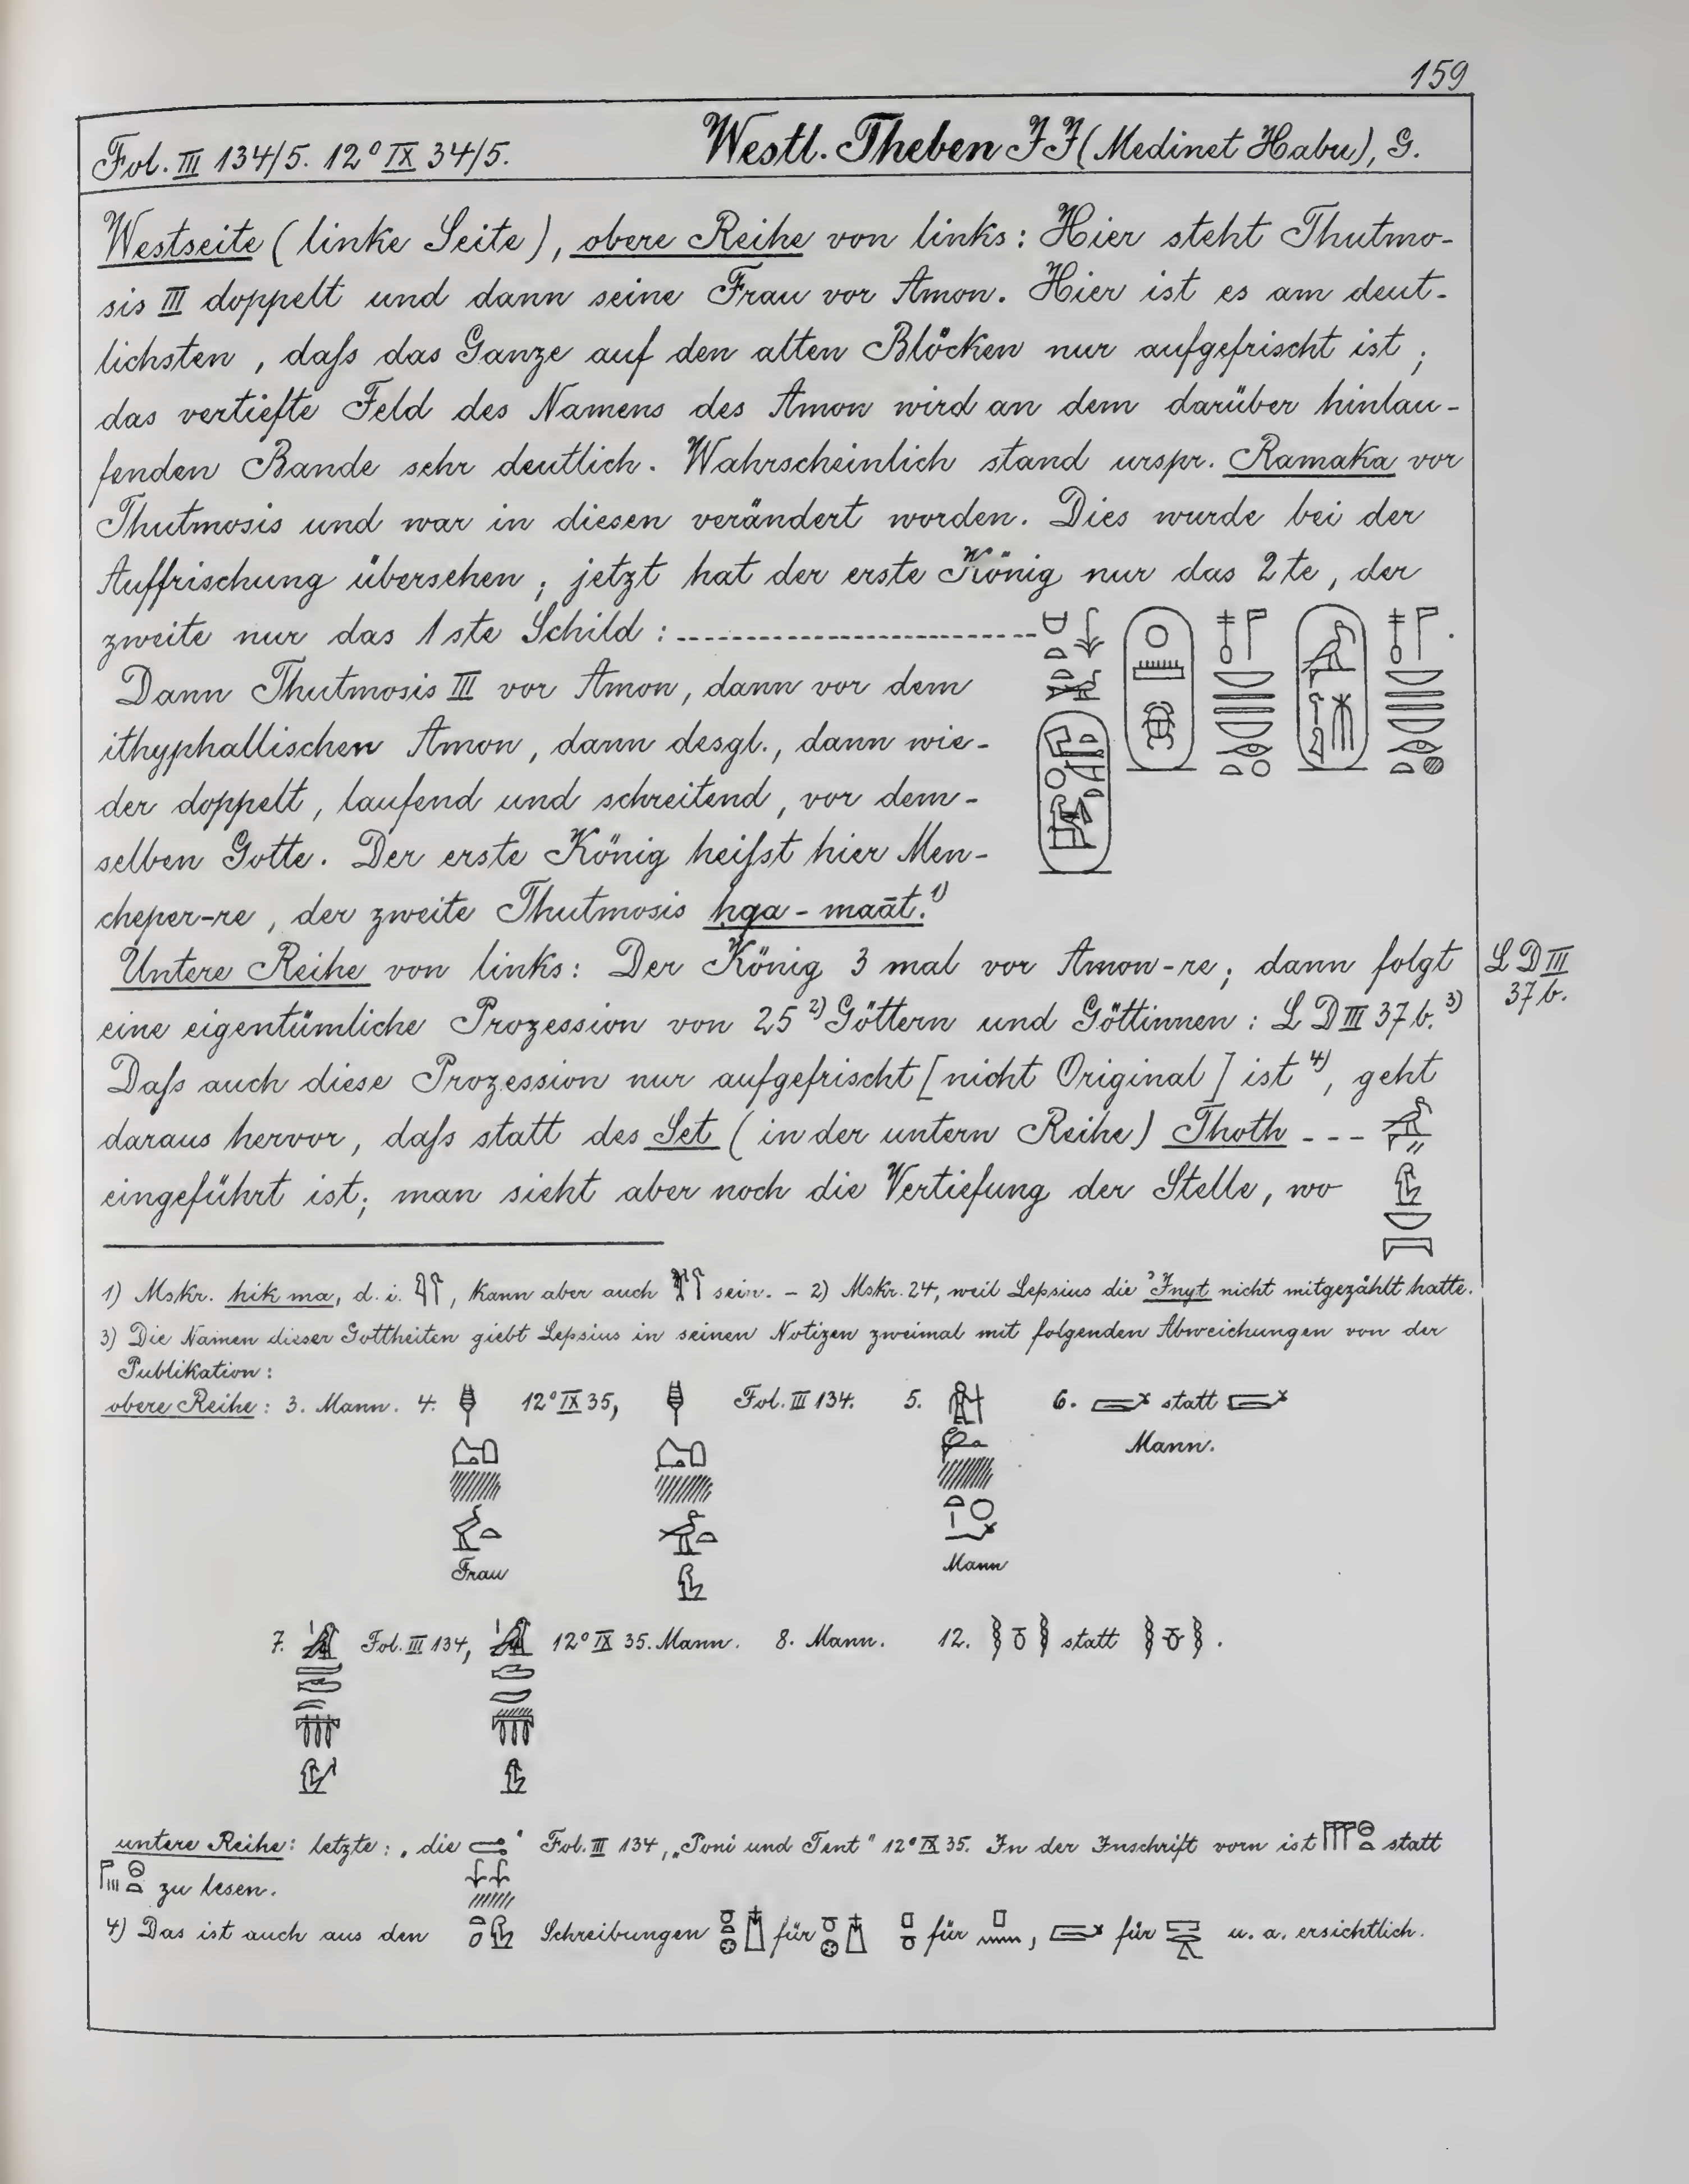 159
Fol. III 134/5. 12° IX 34/5. Westl. Theben JJ (Medinet Habu), G.
Westseite (linke Seite), obere Reihe von links: Hier steht Thutmo-
sis III doppelt und dann seine Frau vor Amon. Hier ist es am deut-
lichsten, daſs das Ganze auf den alten Blöcken nur aufgefrischt ist;
das vertiefte Feld des Namens des Amon wird an dem darüber hinlau-
fenden Bande sehr deutlich. Wahrscheinlich stand urspr. Ramaka vor
Thutmosis und war in diesen verändert worden. Dies wurde bei der
Auffrischung übersehen; jetzt hat der erste König nur das 2te, der
zweite nur das 1ste Schild:
Dann Thutmosis III vor Amon, dann vor dem
ithyphallischen Amon, dann desgl., dann wie-
der doppelt, laufend und schreitend, vor dem-
selben Gotte. Der erste König heiſst hier Men-
cheper-re, der zweite Thutmosis hqa-maāt.1)
Untere Reihe von links: Der König 3 mal vor Amon-re; dann folgt LD III
eine eigentümliche Prozession von 25 2) Göttern und Göttinnen: LD III 37 b. 3) 37 b.
Daſs auch diese Prozession nur aufgefrischt [nicht Original] ist 4), geht
daraus hervor, daſs statt des Set (in der untern Reihe) Thoth ---
eingeführt ist; man sieht aber noch die Vertiefung der Stelle, wo
1) Mskr. hik ma, d. i. , kann aber auch sein. – 2) Mskr. 24, weil Lepsius die ʾInyt nicht mitgezählt hatte.
3) Die Namen dieser Gottheiten giebt Lepsius in seinen Notizen zweimal mit folgenden Abweichungen von der
Publikation:
obere Reihe: 3. Mann. 4. 12° IX 35, Fol. III 134. 5. 6. statt
Mann.
Frau Mann
7. Fol. III 134, 12° IX 35. Mann. 8. Mann. 12. statt .
untere Reihe: letzte: „die " Fol. III 134, „Toni und Tent" 12° IX 35. In der Inschrift vorn ist statt
zu lesen.
4) Das ist auch aus den Schreibungen für für , für u. a. ersichtlich.